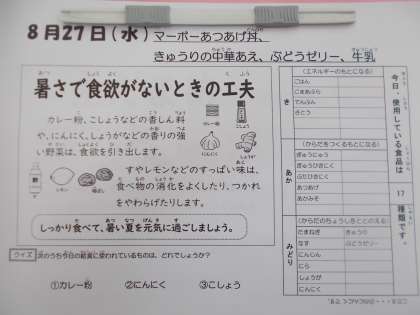 8月27日(水) マーボーあつあげ丼、
きゅうりの中華あえ、ぶどうゼリー、牛乳
暑さで食欲がないときの工夫
カレー粉、こしょうなどの香しん料
や、にんにく、しょうがなどの香りの強
い野菜は、食欲を引き出します。
すやレモンなどのすっぱい味は、
食べ物の消化をよくしたり、つかれ
をやわらげたりします。
しっかり食べて、暑い夏を元気に過ごしましょう。
クイズ 次のうち今日の給食に使われているものは、どれでしょうか?
①カレー粉 ②にんにく ③こしょう
今日、使用している食品は 17 種類です。
き
(エネルギーのもとになる)
ごはん
ごまあぶら
でんぷん
さとう
あか
(からだをつくるもとになる)
ぎゅうにゅう
ぎゅうひきにく
ぶたひきにく
あつあげ
あかみそ
みどり
(からだのちょうしをととのえる)
たまねぎ きゅうり
なす ぶどうゼリー
にんじん
にら
しょうが
にんにく